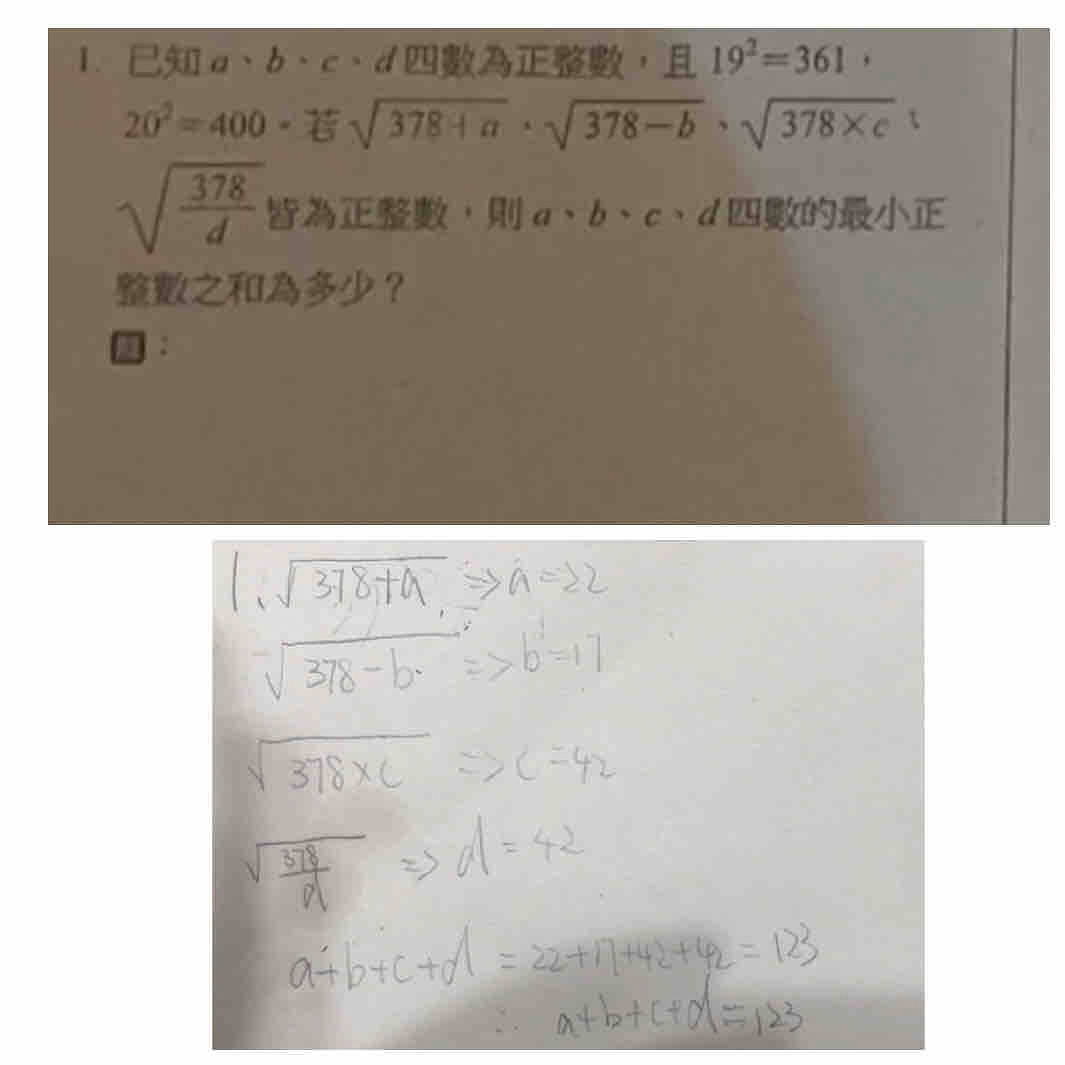 1. 已知 a、b、c、d 四數為正整數，且 19²＝361，
20²＝400。若 √(378＋a)、√(378－b)、√(378×c)、
√(378/d) 皆為正整數，則 a、b、c、d 四數的最小正
整數之和為多少？
1. √(378+a) => a=22
√(378-b) => b=17
√(378×c) => c=42
√(378/d) => d=42
a+b+c+d = 22+17+42+42 = 123
∴ a+b+c+d=123